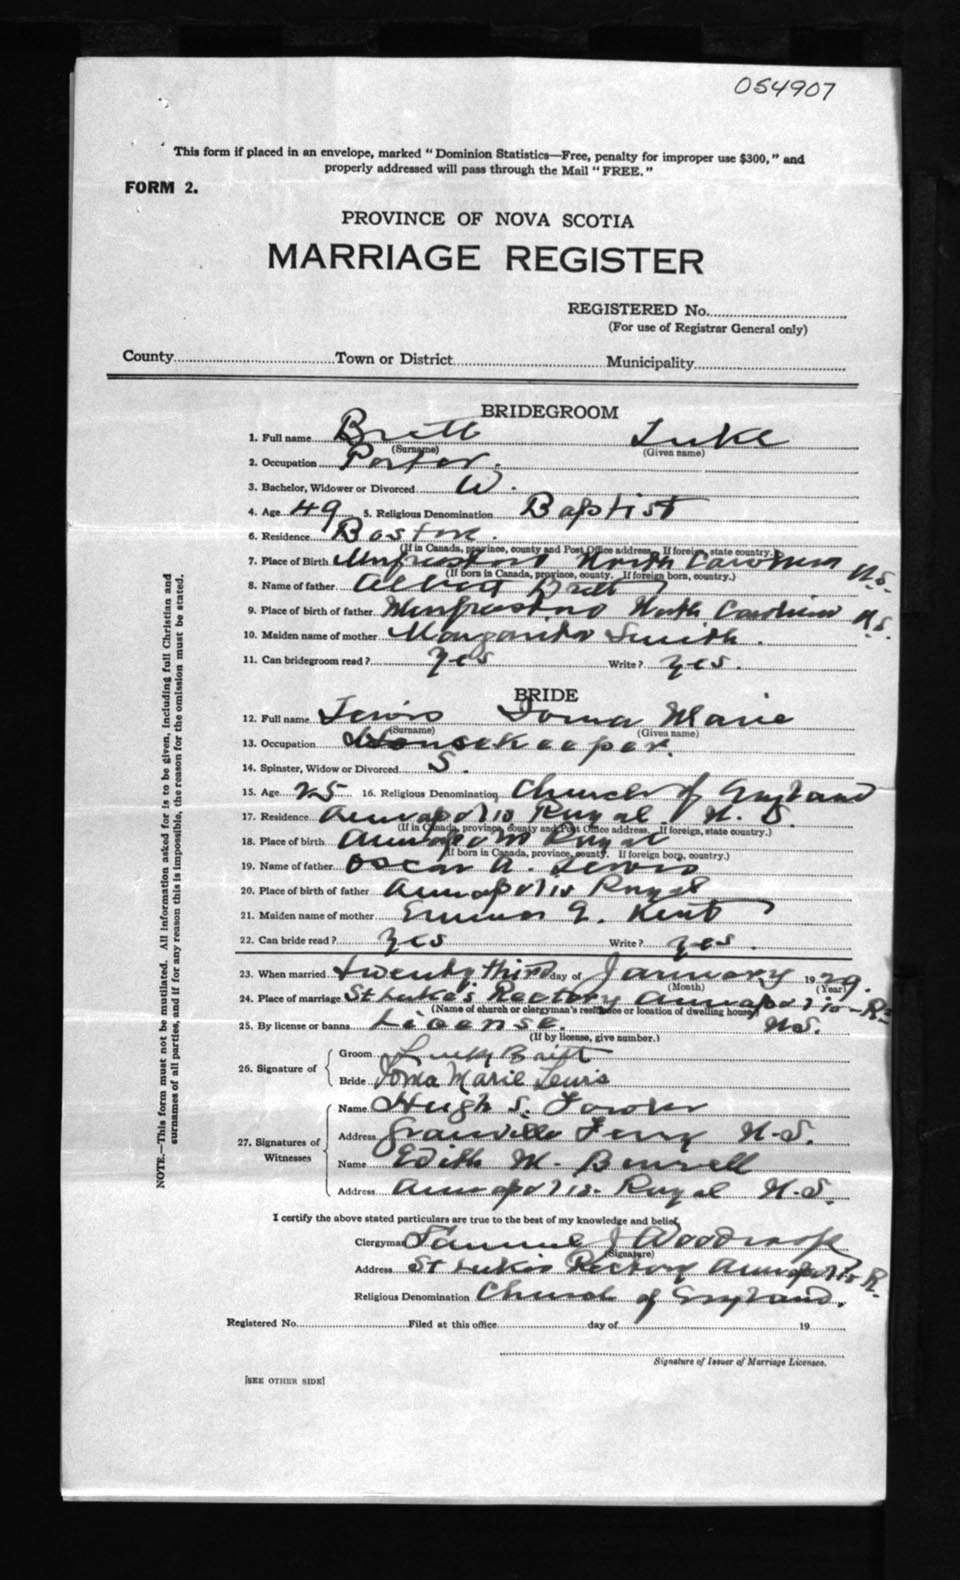 054907
This form if placed in an envelope, marked "Dominion Statistics—Free, penalty for improper use $300," and
properly addressed will pass through the Mail "FREE."
FORM 2.
PROVINCE OF NOVA SCOTIA
MARRIAGE REGISTER
REGISTERED No.
(For use of Registrar General only)
County Town or District Municipality
BRIDEGROOM
1. Full name Britt Luke
(Surname) (Given name)
2. Occupation Porter.
3. Bachelor, Widower or Divorced W.
4. Age 49 5. Religious Denomination Baptist
6. Residence Boston.
(If in Canada, province, county and Post Office address. If foreign, state country.)
7. Place of Birth North Carolina U.S.
(If born in Canada, province, county. If foreign born, country.)
8. Name of father Albert Britt
9. Place of birth of father North Carolina U.S.
10. Maiden name of mother Smith.
11. Can bridegroom read? yes Write? yes.
BRIDE
12. Full name Lewis Ioma Marie
(Surname) (Given name)
13. Occupation Housekeeper.
14. Spinster, Widow or Divorced S.
15. Age 25 16. Religious Denomination Church of England
17. Residence Annapolis Royal N.S.
(If in Canada, province, county and Post Office address. If foreign, state country.)
18. Place of birth Annapolis Royal
(If born in Canada, province, county. If foreign born, country.)
19. Name of father Oscar A. Lewis
20. Place of birth of father Annapolis Royal
21. Maiden name of mother Emma E. Kent
22. Can bride read? yes Write? yes.
23. When married twenty third day of January 1929.
(Month) (Year)
24. Place of marriage St Luke's Rectory Annapolis-R.
(Name of church or clergyman's residence or location of dwelling house)
N.S.
25. By license or banns License.
(If by license, give number.)
26. Signature of
Groom Britt
Bride Ioma Marie Lewis
27. Signatures of Witnesses
Name Hugh S. Fowler
Address Granville Ferry N.S.
Name Edith M.
Address Annapolis Royal N.S.
I certify the above stated particulars are true to the best of my knowledge and belief.
Clergyman J Woodroofe
(Signature)
Address St Luke's Rectory Annapolis R.
Religious Denomination Church of England.
Registered No. Filed at this office day of 19
Signature of Issuer of Marriage Licenses.
[SEE OTHER SIDE]
NOTE.—This form must not be mutilated. All information asked for is to be given, including full Christian and
surnames of all parties, and if for any reason this is impossible, the reason for the omission must be stated.